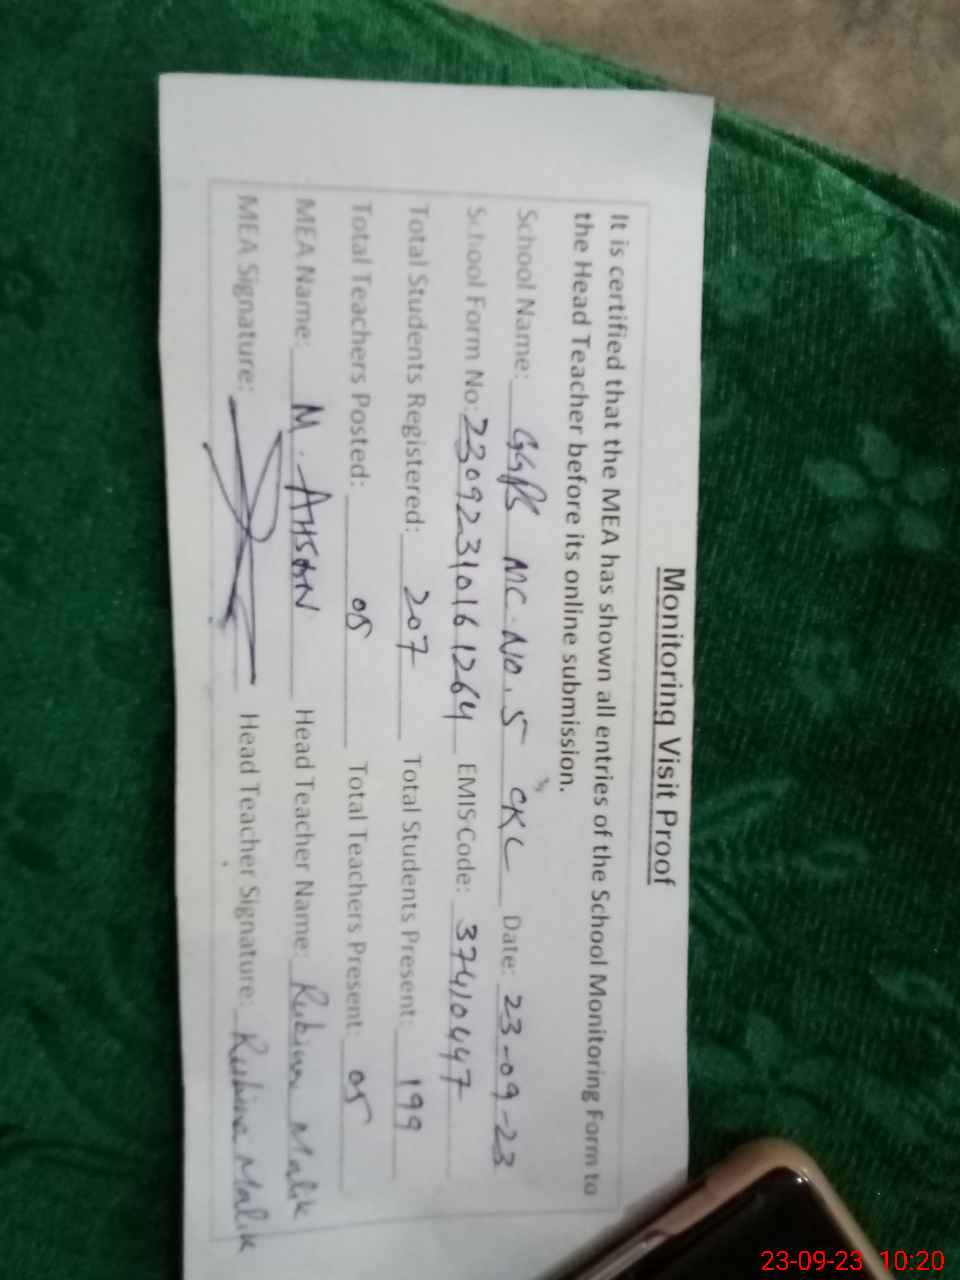 Monitoring Visit Proof
It is certified that the MEA has shown all entries of the School Monitoring Form to
the Head Teacher before its online submission.
School Name: GGPS MC. NO. 5 CKL Date: 23-09-23
School Form No: 23092310161264 EMIS Code: 37410447
Total Students Registered: 207 Total Students Present: 199
Total Teachers Posted: 05 Total Teachers Present: 05
MEA Name: M. AHSAN Head Teacher Name: Rubina Malik
MEA Signature: Head Teacher Signature: Rubina Malik
23-09-23 10:20